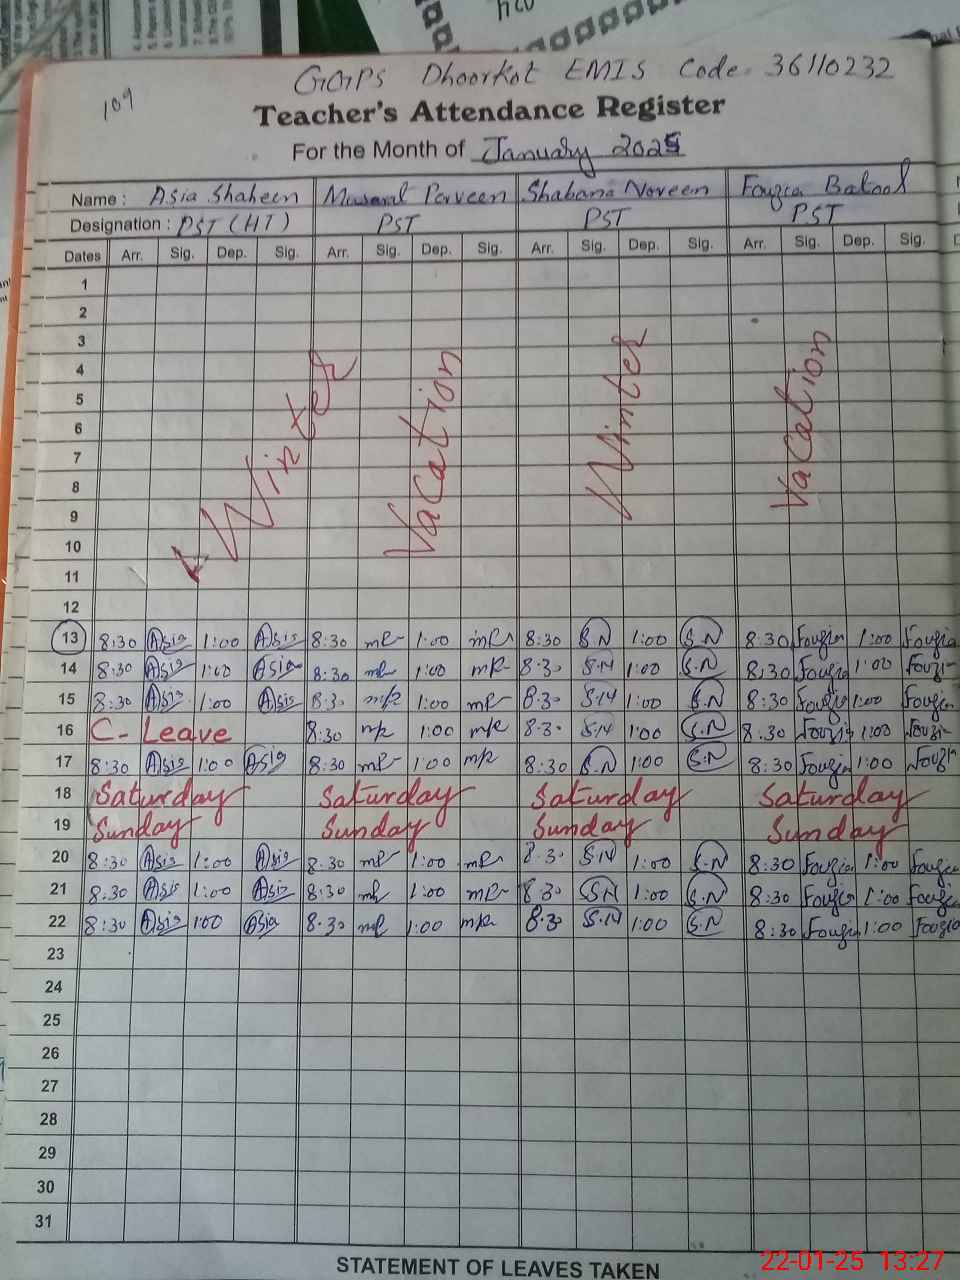 109
GGPS Dhoorkot EMIS Code. 36110232
Teacher's Attendance Register
For the Month of January 2025
Name : Asia Shaheen Parveen Shabana Noreen Fouzia Batool
Designation : PST (HT) PST PST PST
Dates Arr. Sig. Dep. Sig. Arr. Sig. Dep. Sig. Arr. Sig. Dep. Sig. Arr. Sig. Dep. Sig.
1
2
3
4
5
6
7
8
9
10
11
12
Winter Vacation Winter Vacation
13 8:30 Asia 1:00 Asia 8:30 MP 1:00 MP 8:30 S.N 1:00 S.N 8:30 Fouzia 1:00 Fouzia
14 8:30 Asia 1:00 Asia 8:30 MP 1:00 MP 8:30 S.N 1:00 S.N 8:30 Fouzia 1:00 Fouzia
15 8:30 Asia 1:00 Asia 8:30 MP 1:00 MP 8:30 S.N 1:00 S.N 8:30 Fouzia 1:00 Fouzia
16 C- Leave 8:30 MP 1:00 MP 8:30 S.N 1:00 S.N 8:30 Fouzia 1:00 Fouzia
17 8:30 Asia 1:00 Asia 8:30 MP 1:00 MP 8:30 S.N 1:00 S.N 8:30 Fouzia 1:00 Fouzia
18 Saturday Saturday Saturday Saturday
19 Sunday Sunday Sunday Sunday
20 8:30 Asia 1:00 Asia 8:30 MP 1:00 MP 8:30 S.N 1:00 S.N 8:30 Fouzia 1:00 Fouzia
21 8:30 Asia 1:00 Asia 8:30 MP 1:00 MP 8:30 S.N 1:00 S.N 8:30 Fouzia 1:00 Fouzia
22 8:30 Asia 1:00 Asia 8:30 MP 1:00 MP 8:30 S.N 1:00 S.N 8:30 Fouzia 1:00 Fouzia
23
24
25
26
27
28
29
30
31
STATEMENT OF LEAVES TAKEN
22-01-25 13:27